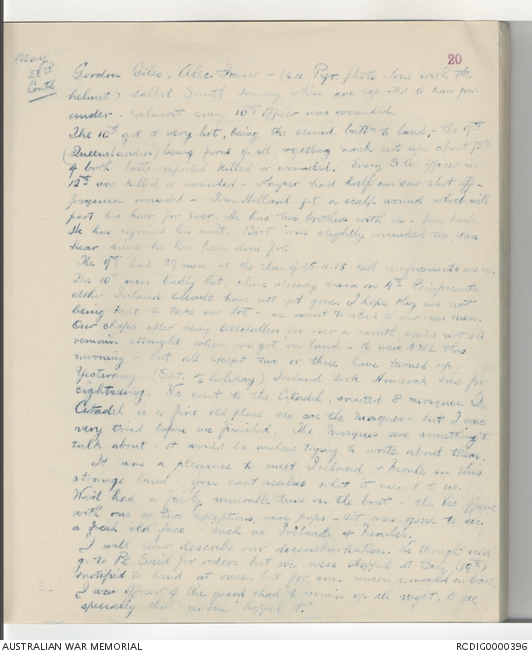 20
May
23rd
Contd
Gordon Giles, Alec Fraser - (see Pyr. photo - one with the
helmet) Talbot Smith & many others are reported to have gone
under - almost every 10th officer was wounded.
The 10th got it very hot, being the second battn to land; the 9th
(Queenslanders) being first of all, & getting much cut up, about 75%
of both battns reported killed or wounded. Every S.A. officer in
12th was killed or wounded - Kayser had half an ear shot off -
Jorgensen wounded - Tom Holland got a scalp wound which will
part his hair for ever. He has two brothers with us - fine lads.
He has rejoined his unit. Birt was slightly wounded too,
hear since he has been done for.
The 9th had 29 men at the close of 25-4-15 till
The 10th were badly but, & have already drawn on 4th Reinforcements
altho' Ireland & have not yet gone. I hope they are not
being kept to take our lot - we want to stick to our own men.
Our chaps after being teetotallers for over a month, could not all
remain straight when we got on land - 16 were AWL this
morning - but all except two or three have turned up.
Yesterday (Sat. ½ holiday) Ireland took Hancock & me for
sightseeing. We went to the Citadel, & visited 2 mosques. The
Citadel is a fine old place so are the Mosques - but I was
very tired before we finished. The Mosques are something to
talk about - it would be useless trying to write about them.
It was a pleasure to meet Ireland & in this
strange land - you can't realise what it meant to us.
We'd had a fairly miserable time on the boat - the Vic. officers
with one or two exceptions, were pups - it was good to see
a fresh old face such as Ireland's &
I will now describe our disembarkation. We thought we'd
go to Pt. Said for orders but we were stopped at Suez (19th)
& notified to land at once, but for some reason remained on board
I was officer of the guard & had to remain up all night, to see
specially that no one "hopped it."
AUSTRALIAN WAR MEMORIAL
RCDIG0000396